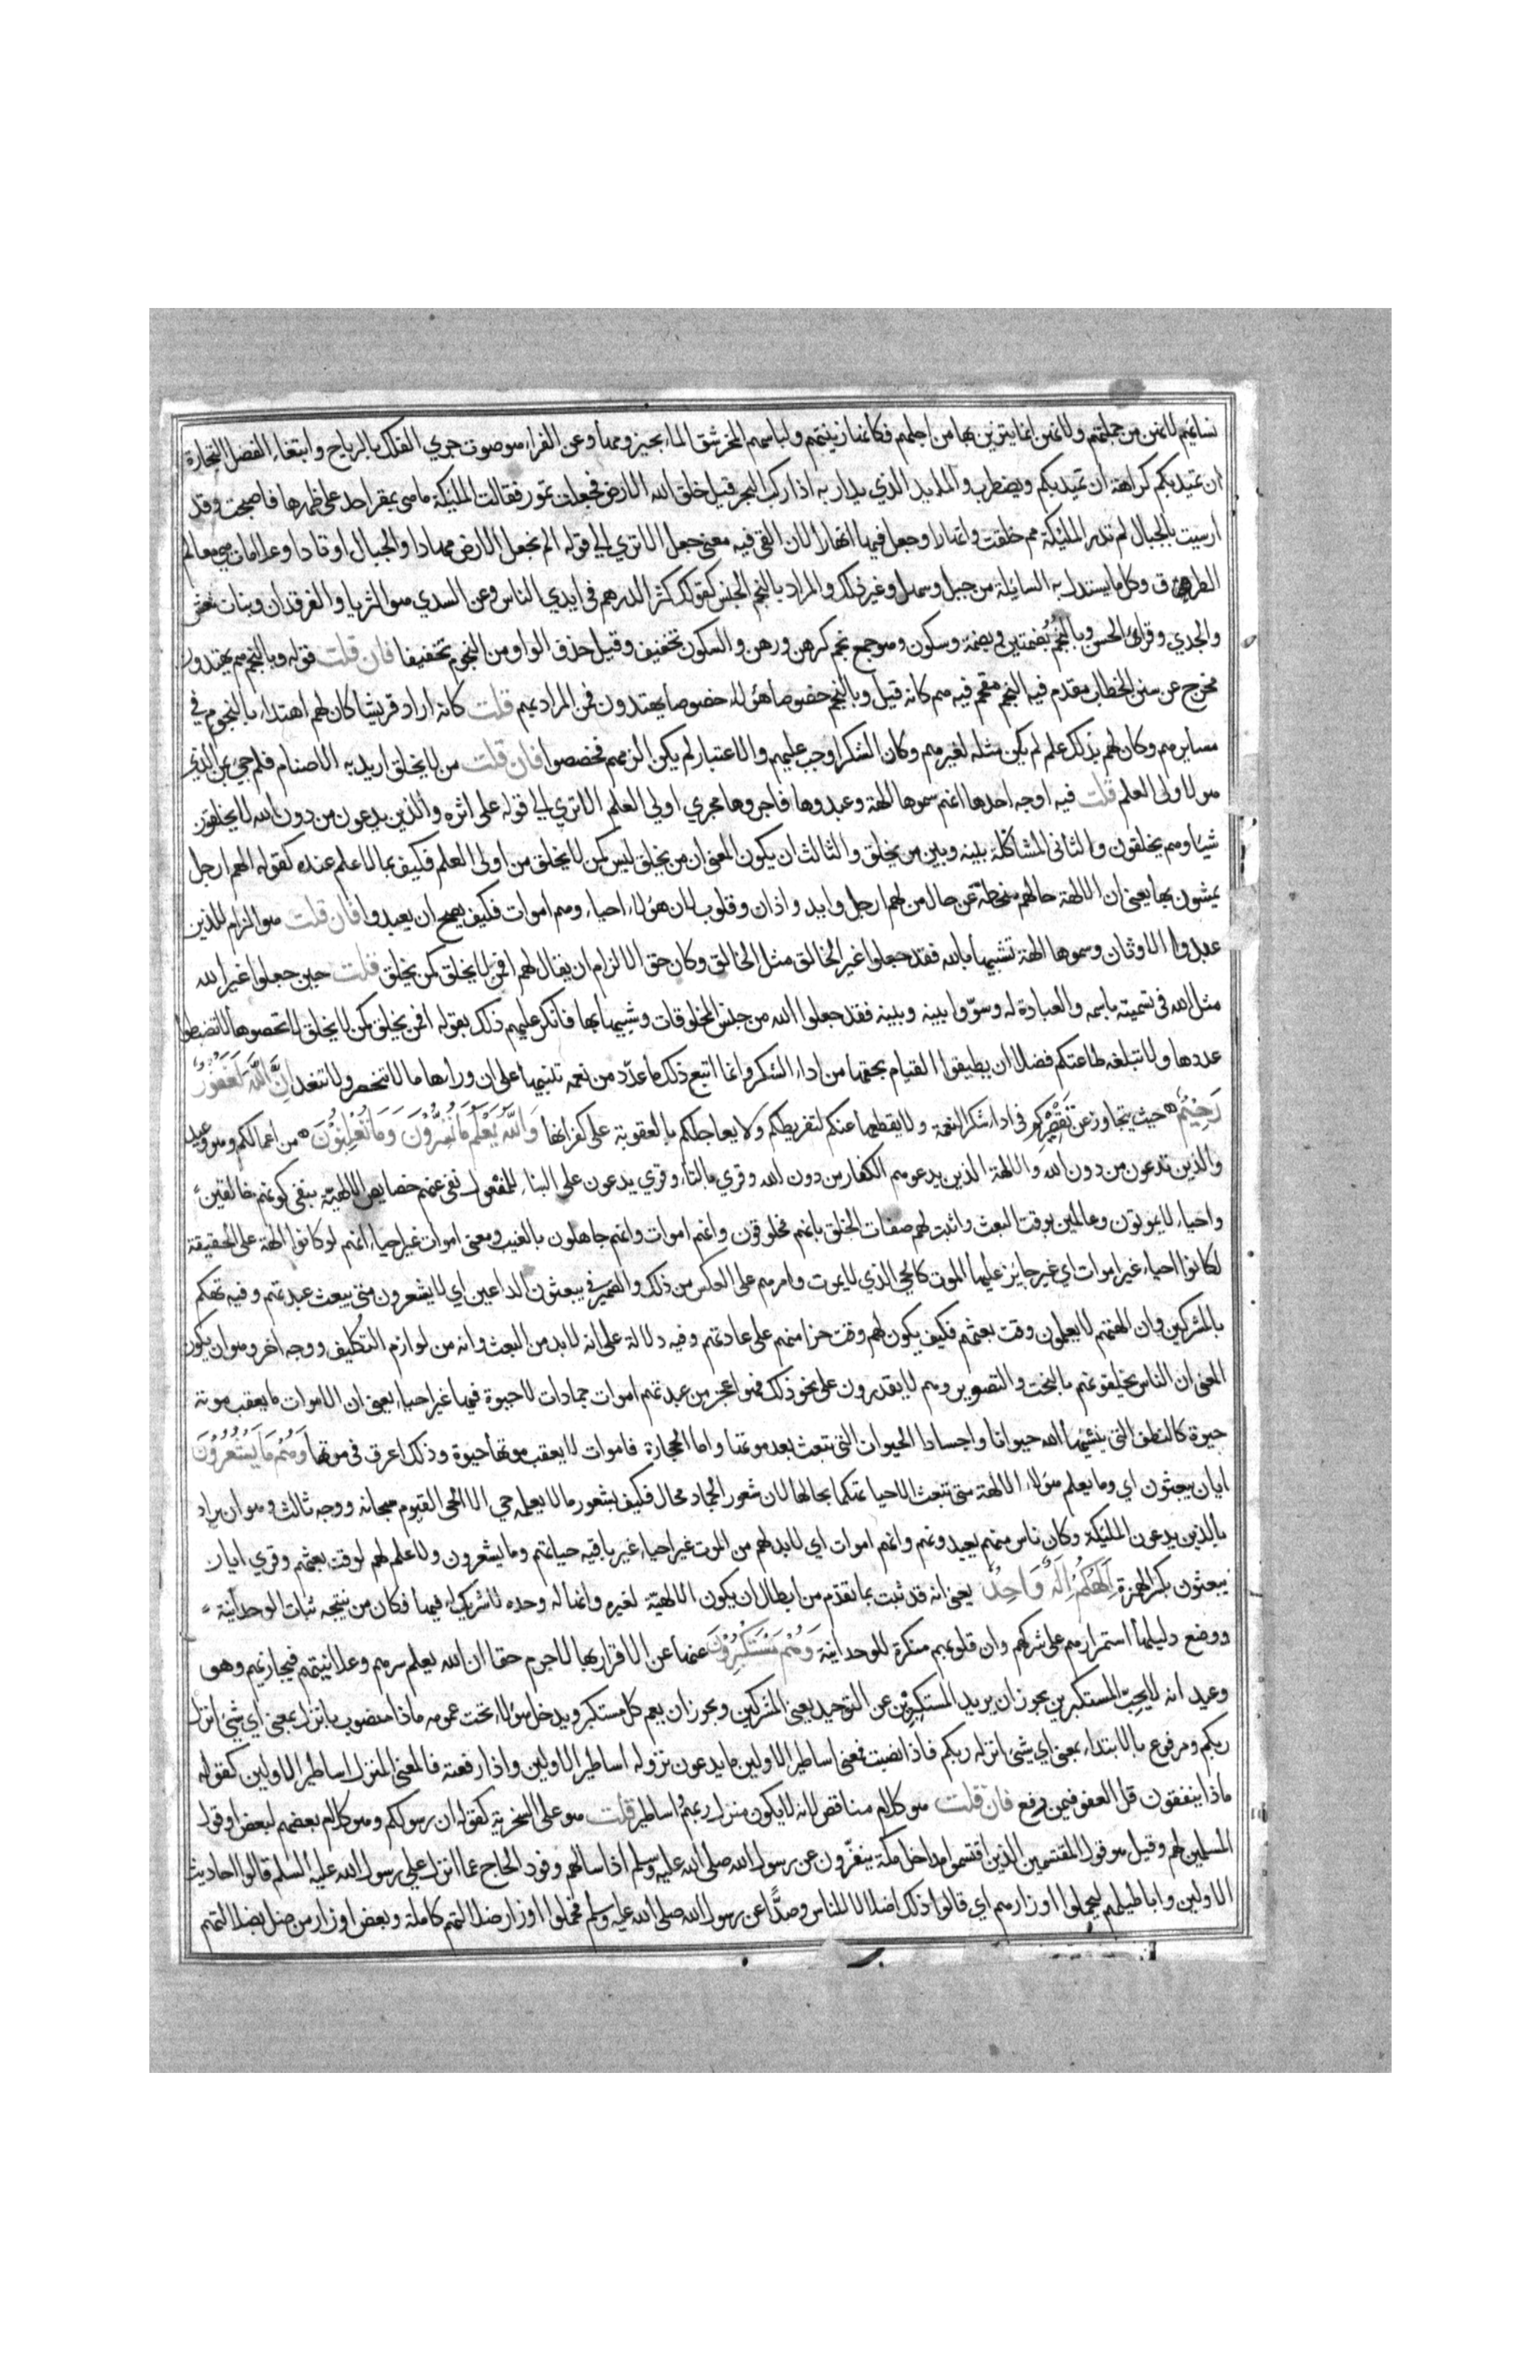 نسائهم لانهن من جملتهم ولانهن انما يتزين بها من اجلهم فكأنها زينتهم ولباسهم المخر شق الماء بحيزومها وعن الفراء هو صوت جري الفلك بالرياح وابتغاء الفضل التجارة
ان تميد بكم كراهة ان تميد بكم ويضطرب والمايد الذي يدار به اذا ركب البحر قيل خلق الله الارض فجعلت تمور فقالت الملئكة ما هي بمقر احد على ظهرها فاصبحت وقد
ارسيت بالجبال لم تدر الملئكة مم خلقت وانهارا وجعل فيها انهارا لان القى فيه معنى جعل الا تري الي قوله الم نجعل الارض مهادا والجبال اوتادا وعلامات هي معالم
الطرق وكل ما يستدل به السائلة من جبل وسهل وغير ذلك والمراد بالنجم الجنس كقولك كثر الدرهم في ايدي الناس وعن السدي هو الثريا والفرقدان وبنات نعش
والجدي وقرأ الحسن وبالنُّجُم بضمتين وبضمة وسكون وهو جمع نجم كرهن ورهن والسكون تخفيف وقيل حذف الواو من النجوم تخفيفا فان قلت قوله وبالنجم هم يهتدون
مخرج عن سنن الخطاب مقدم فيه النجم مقحم فيه هم كانه قيل وبالنجم خصوصا هؤلاء خصوصا يهتدون فمن المراد بهم قلت كانه اراد قريشا كان لهم اهتداء بالنجوم في
مسايرهم وكان لهم بذلك علم لم يكن مثله لغيرهم وكان الشكر اوجب عليهم والاعتبار لم يكن الزم لهم فخصصوا فان قلت من لا يخلق اريد به الاصنام فلم جيء بمن الذي
هو لاولى العلم قلت فيه اوجه احدها انهم سموها الهة وعبدوها فاجروها مجري اولي العلم الا تري الي قوله على اثره والذين يدعون من دون الله لا يخلقون
شيئا وهم يخلقون والثاني المشاكلة بينه وبين من يخلق والثالث ان يكون المعنى ان من يخلق ليس كمن لا يخلق من اولى العلم فكيف بما لا علم عنده كقوله الهم ارجل
يمشون بها يعنى ان الالهة حالهم منحطة عن حال من لهم ارجل وايد واذان وقلوب لان هؤلاء احياء وهم اموات فكيف يصح ان يعبدوا فان قلت هو الزام للذين
عبدوا الاوثان وسموها الهة تشبيها بالله فقد جعلوا غير الخالق مثل الخالق وكان حق الالزام ان يقال لهم افمن لا يخلق كمن يخلق قلت حين جعلوا غير الله
مثل الله في تسميته باسمه والعبادة له وسوّوا بينه وبينه فقد جعلوا الله من جنس المخلوقات وشبيها بها فانكر عليهم ذلك بقوله افمن يخلق كمن لا يخلق لا تحصوها لا تضبطوا
عددها ولا تبلغه طاعتكم فضلا ان يطيقوا القيام بحقها من اداء الشكر وانما اتبع ذلك ما عدّد من نعمه تنبيها على ان وراءها ما لا تنحصر ولا تنعد اِنَّ اللّٰهَ لَغَفُوْرٌ
رَحِيْمٌ حيث يتجاوز عن تقصيركم في اداء شكر النعمة ولا يقطعها عنكم لتفريطكم ولا يعاجلكم بالعقوبة على كفرانها وَاللّٰهُ يَعْلَمُ مَا تُسِرُّوْنَ وَمَا تُعْلِنُوْنَ من اعمالكم وهو وعيد
والذين تدعون من دون الله والالهة الذين يدعوهم الكفار من دون الله وقري بالتاء وقري يدعون على البناء للمفعول نفى عنهم خصايص الالهيّة بنفى كونهم خالقين
واحياء لا يموتون وعالمين بوقت البعث واثبت لهم صفات الخلق بانهم مخلوقون وانهم اموات وانهم جاهلون بالغيب ومعنى اموات غير احياء انهم لو كانوا الهة على الحقيقة
لكانوا احياء غير اموات اي غير جايز عليها الموت كالحي الذي لا يموت وامرهم على العكس من ذلك والضمير في يبعثون للداعين اي لا يشعرون متى يبعث عبدتهم وفيه تهكم
بالمشركين وان الهتهم لا يعلمون وقت بعثهم فكيف يكون لهم وقت جزا منهم على عادتهم وفيه دلالة على انه لا بد من البعث وانه من لوازم التكليف ووجه اخر وهو ان يكون
المعنى ان الناس يخلقونهم بالنحت والتصوير وهم لا يقدرون على نحو ذلك فهو اعجز من عبدتهم اموات جمادات لا حيوة فيها غير احياء يعني ان الاموات ما يعقب موته
حيوة كالنطف التي ينشئها الله حيوانا واجساد الحيوان التي تبعث بعد موتها واما الحجارة فاموات لا يعقب موتها حيوة وذلك اعرق في موتها وَهُمْ مَا يَشْعُرُوْنَ
ايان يبعثون اي وما يعلم هؤلاء الالهة متى تبعث الاحياء تهكما بحالها لان شعور الجماد محال فكيف بشعور ما لا يعلمه حي الا الحي القيوم سبحانه ووجه ثالث وهو ان يراد
بالذين يدعون الملئكة وكان ناس منهم يعبدونهم وانهم اموات اي لا بد لهم من الموت غير احياء غير باقيه حياتهم وما يشعرون ولا علم لهم لوقت بعثهم وقري ايان
يبعثون بكسر الهمزة اِلٰهُكُمْ اِلٰهٌ وَاحِدٌ يعنى انه قد ثبت بما تقدّم من ابطال ان يكون الالهيّة لغيره وانها له وحده لا شريك له فيها فكان من نتيجه ثبات الوحدانية
ووضع دليلها استمرارهم على شركهم وان قلوبهم منكرة للوحدانية وَهُمْ مُسْتَكْبِرُوْنَ عنها عن الاقرار بها لا جرم حقا ان الله يعلم سرهم وعلانيتهم فيجازيهم وهو
وعيد انه لا يحبّ المستكبرين يجوز ان يريد المستكبرين عن التوحيد يعنى المشركين ويجوز ان يعم كل مستكبر ويدخل هؤلاء تحت عمومه ماذا منصوب بانزل بمعنى اي شيء انزل
ربكم ومرفوع بالابتداء بمعنى اي شيء انزله ربكم فاذا نصبت فمعنى اساطير الاولين ما يدعون نزوله اساطير الاولين واذا رفعته فالمعنى المنزل اساطير الاولين كقوله
ماذا ينفقون قل العفو فيمن رفع فان قلت هو كلام متناقض لانه لا يكون منزل ربهم اساطير قلت هو على السخرية كقوله ان رسولكم وهو كلام بعضهم لبعض او قول
المسلمين لهم وقيل هو قول المقتسمين الذين اقتسموا مداخل مكة ينفّرون عن رسول الله صلى الله عليه وسلم اذا سألهم وفود الحاج عما انزل علي رسول الله عليه السلم قالوا احاديث
الاولين واباطيلهم ليحملوا اوزارهم اي قالوا ذلك اضلالا للناس وصدًّا عن رسول الله صلى الله عليه وسلم فحملوا اوزار ضلالتهم كاملة وبعض اوزار من ضل بضلالتهم